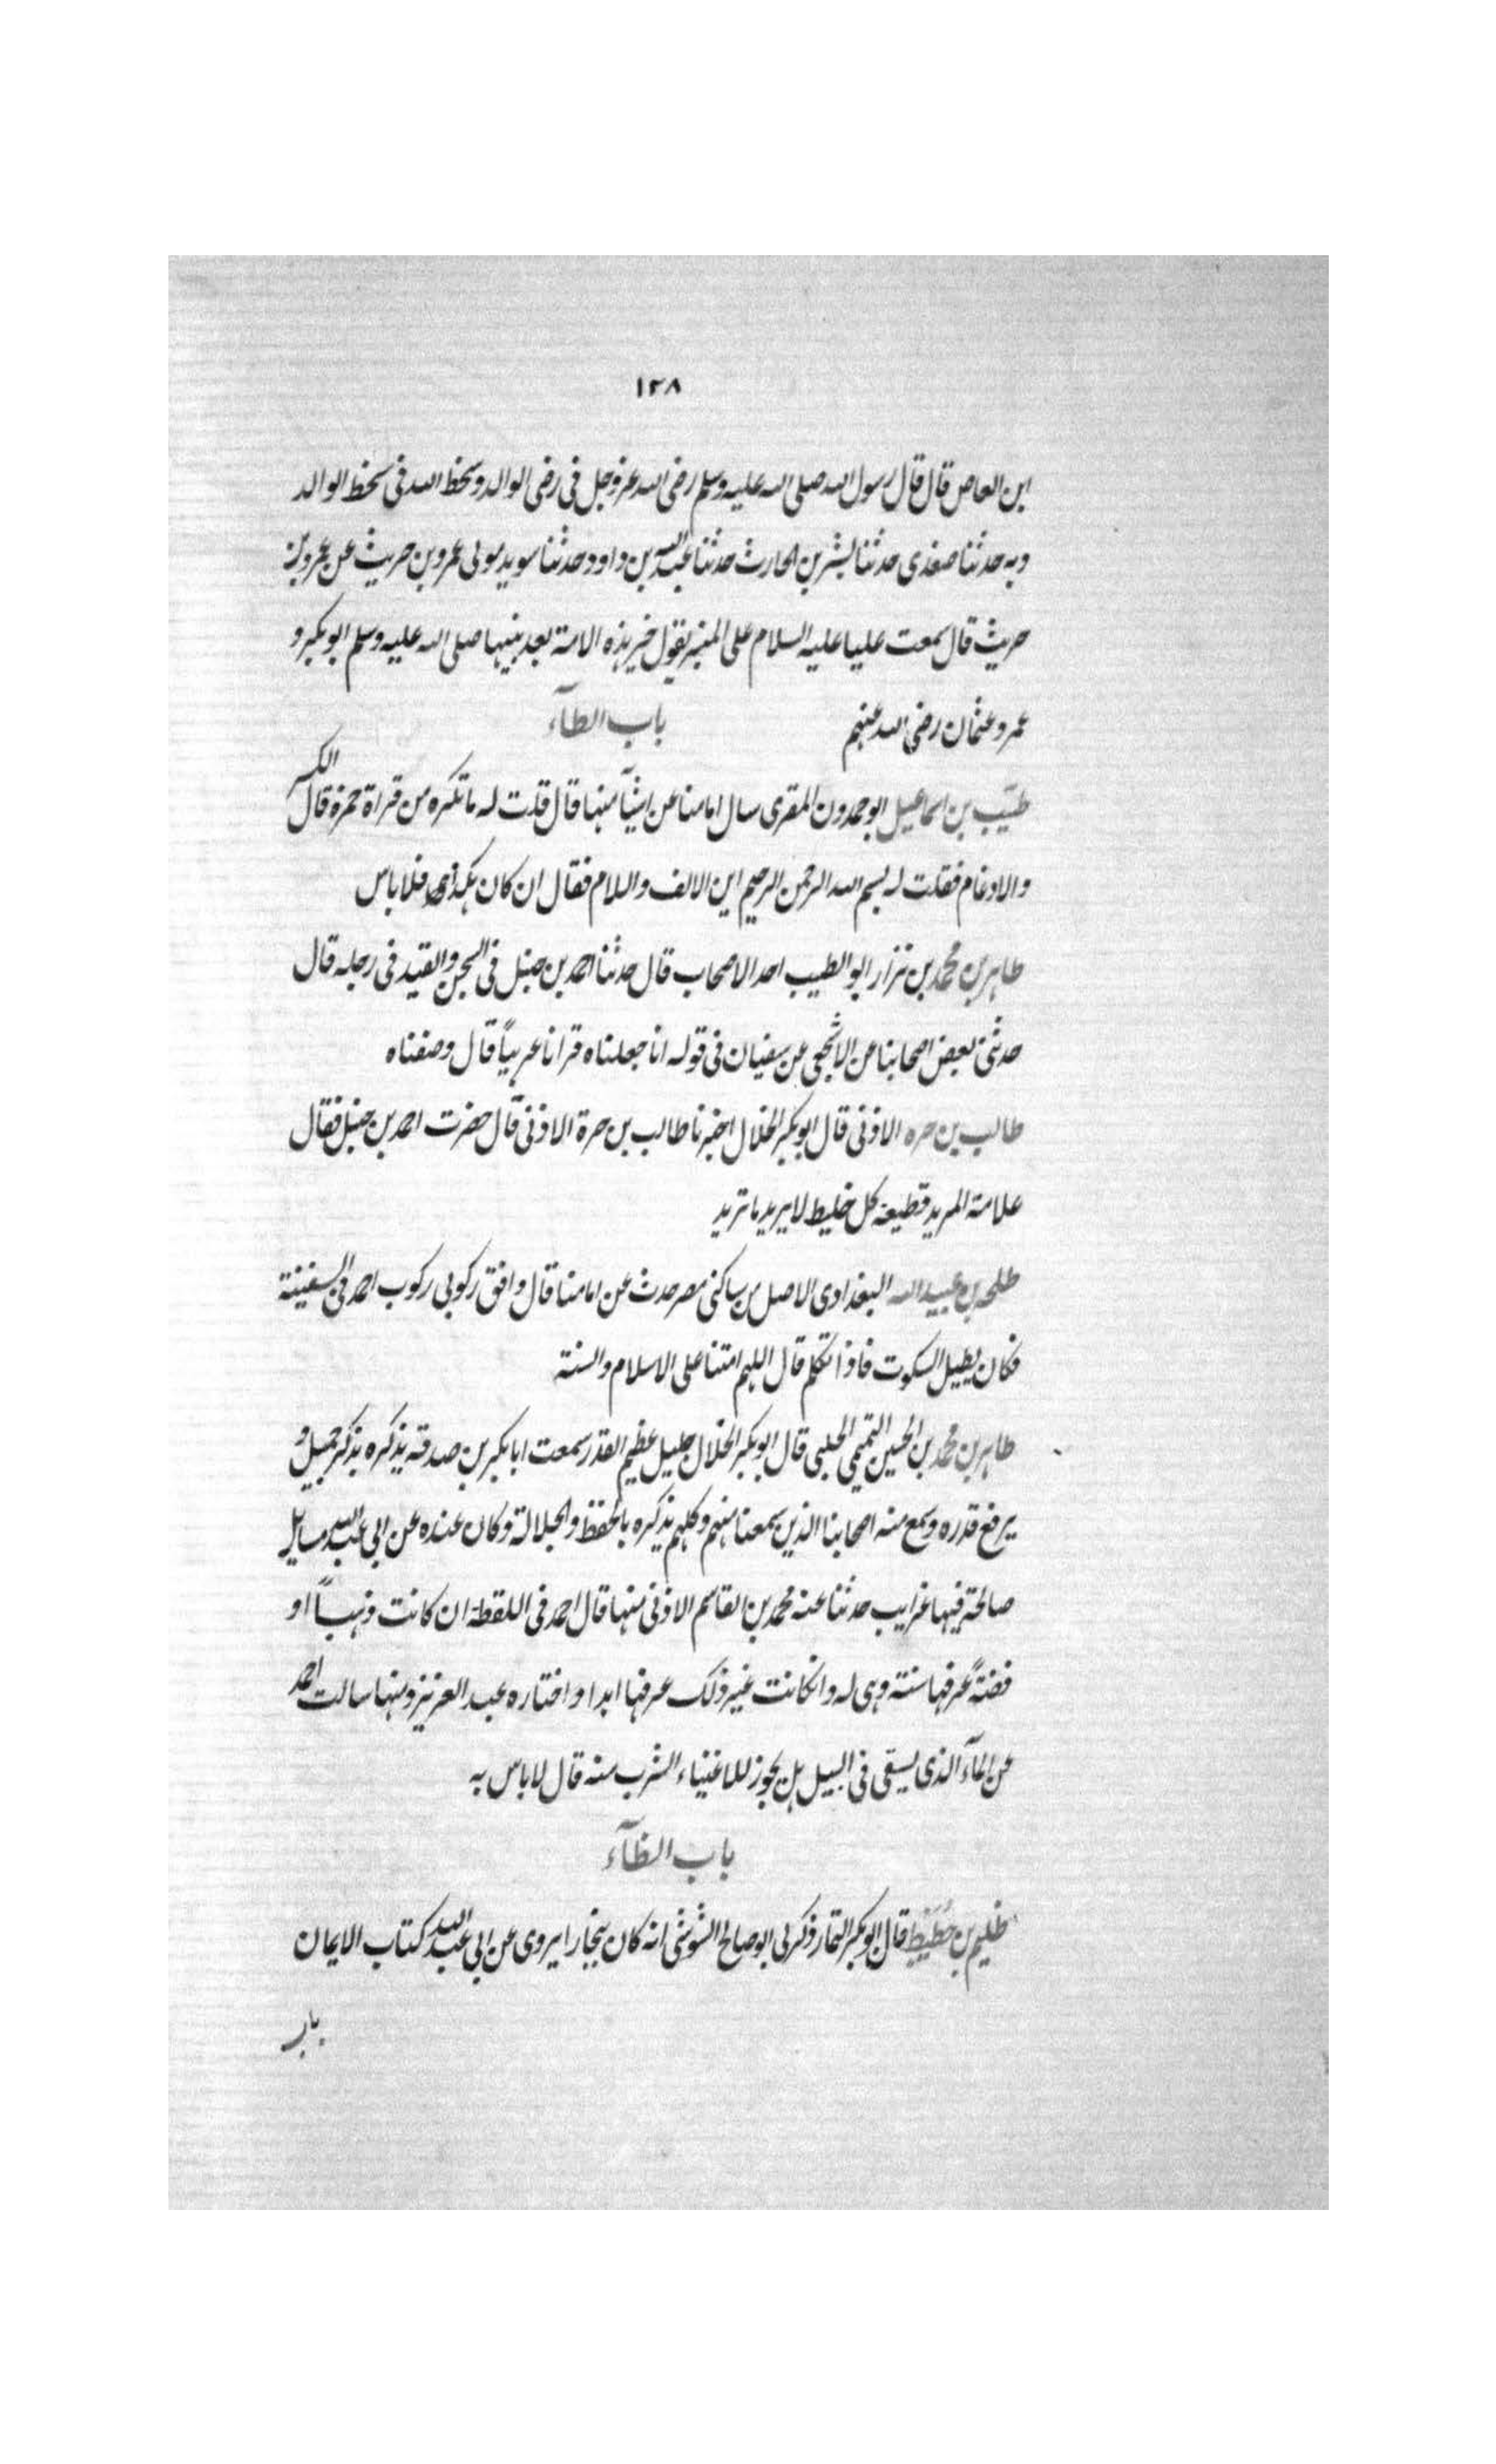 ١٢٨
ابن العاص قال قال رسول الله صلى الله عليه وسلم رضى الله عز وجل فى رضى الوالد وسخط الله فى سخط الوالد
وبه حدثنا صغدى حدثنا بشر بن الحارث حدثنا عبد الله بن داود حدثنا سويد مولى عمرو بن حريث عن عمرو بن
حريث قال سمعت عليا عليه السلام على المنبر يقول خير هذه الامة بعد نبيها صلى الله عليه وسلم ابو بكر و
عمر وعثمان رضى الله عنهم باب الطآء
طيب بن اسماعيل ابو حمدون المقرى سال امامنا عن اشيآ منها قال قلت له ما تكره من قراة حمزة قال الكسر
والادغام فقلت له بسم الله الرحمن الرحيم اين الالف واللام فقال ان كان هكذى فلا باس
طاهر بن محمد بن نزار ابو الطيب احد الاصحاب قال حدثنا احمد بن حنبل فى السجن والقيد فى رجله قال
حدثنى بعض اصحابنا عن الاشجعى عن سفيان فى قوله انا جعلناه قرانا عربياً قال وصفناه
طالب بن حره الاذنى قال ابو بكر الخلال اخبرنا طالب بن حرة الاذنى قال حضرت احمد بن حنبل فقال
علامة المريد قطيعة كل خليط لا يريد ما تريد
طلحه بن عبيد الله البغدادى الاصل من ساكنى مصر حدث عن امامنا قال وافق ركوبى ركوب احمد فى السفينة
فكان يطيل السكوت فاذا تكلم قال اللهم امتنا على الاسلام والسنة
طاهر بن محمد بن الحسين التميمى الحلبى قال ابو بكر الخلال جليل عظيم القدر سمعت ابا بكر بن صدقة يذكره بذكر جميل و
يرفع قدره وسمع منه اصحابنا الذين سمعنا منهم وكلهم يذكره بالحفظ والجلالة وكان عنده عن ابى عبد الله مسايل
صالحة فيها غرايب حدثنا عنه محمد بن القاسم الاذنى منها قال احمد فى اللقطة ان كانت ذهباً او
فضةً عرفها سنة وهى له وانكانت غير ذلك عرفها ابدا واختاره عبد العزيز ومنها سالت احمد
عن المآء الذى يسقى فى السبيل هل يجوز للاغنياء الشرب منه قال لا باس به
باب الظآء
ظليم بن حُطَيْط قال ابو بكر ذكر لى ابو صالح انه كان ببخارا يروى عن ابى عبد الله كتاب الايمان
باب